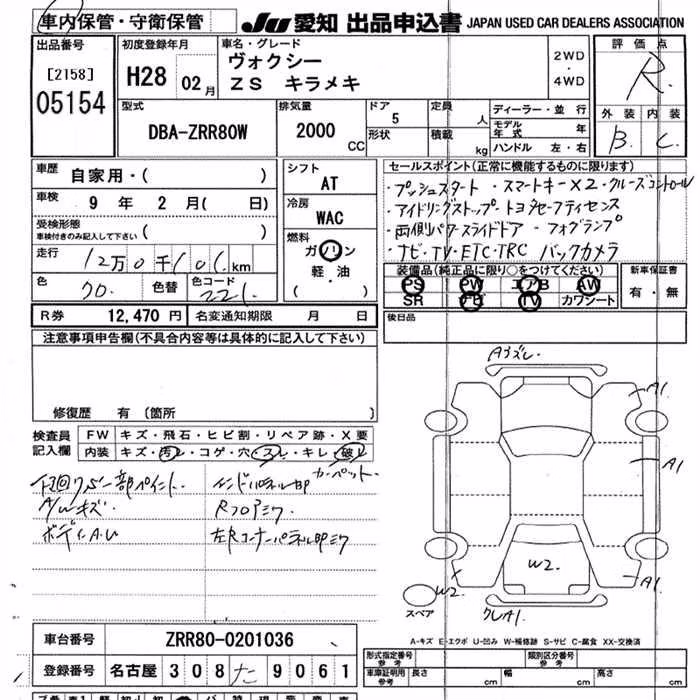 車内保管・守衛保管
JU 愛知 出品申込書 JAPAN USED CAR DEALERS ASSOCIATION
出品番号 [2158] 05154
初度登録年月 H28 02月
車名・グレード ヴォクシー
ZS キラメキ
2WD ・ 4WD
評価点 R
型式 DBA-ZRR80W
排気量 2000 CC
ドア 5
形状
定員 人
積載 kg
ディーラー・並行
モデル年式 年
ハンドル 左・右
外装 内装
B C
車歴 自家用・( )
車検 9年 2月( 日)
受検形態
車検付きのみ記入して下さい ( )
走行 12万0千101km
色 クロ 色替 色コード 221
シフト AT
冷房 WAC
燃料 ガソリン
軽・油
( )
セールスポイント(正常に機能するものに限ります)
・プッシュスタート ・スマートキー×2・クルーズコントロール
・アイドリングストップ・トヨタセーフティセンス
・両側パワースライドドア ・フォグランプ
・ナビ・TV・ETC・TRC バックカメラ
装備品(純正品に限り○をつけてください)
PS PW エアB AW
SR ナビ TV カワシート
新車保証書
有・無
R券 12,470円 名変通知期限 月 日
後日品
注意事項申告欄(不具合内容等は具体的に記入して下さい)
修復歴 有 (箇所 )
検査員記入欄
FW キズ・飛石・ヒビ割・リペア跡・X要
内装 キズ・汚レ・コゲ・穴・スレ・キレ・破レ
カーペット
下回りサビ一部ペイント
A/Wキズ
ボディA.U
インパネ
RフロアミワA
Aフズレ
A1
A1
W2
W2
A1
クレA1
スペア
A-キズ E-エクボ U-凹み W-補修跡 S-サビ C-腐食 XX-交換済
車台番号 ZRR80-0201036
登録番号 名古屋 308 た 9061
形式指定番号 参考
類別区分番号 参考
車庫証明用 参考 長さ cm 幅 cm 高さ cm